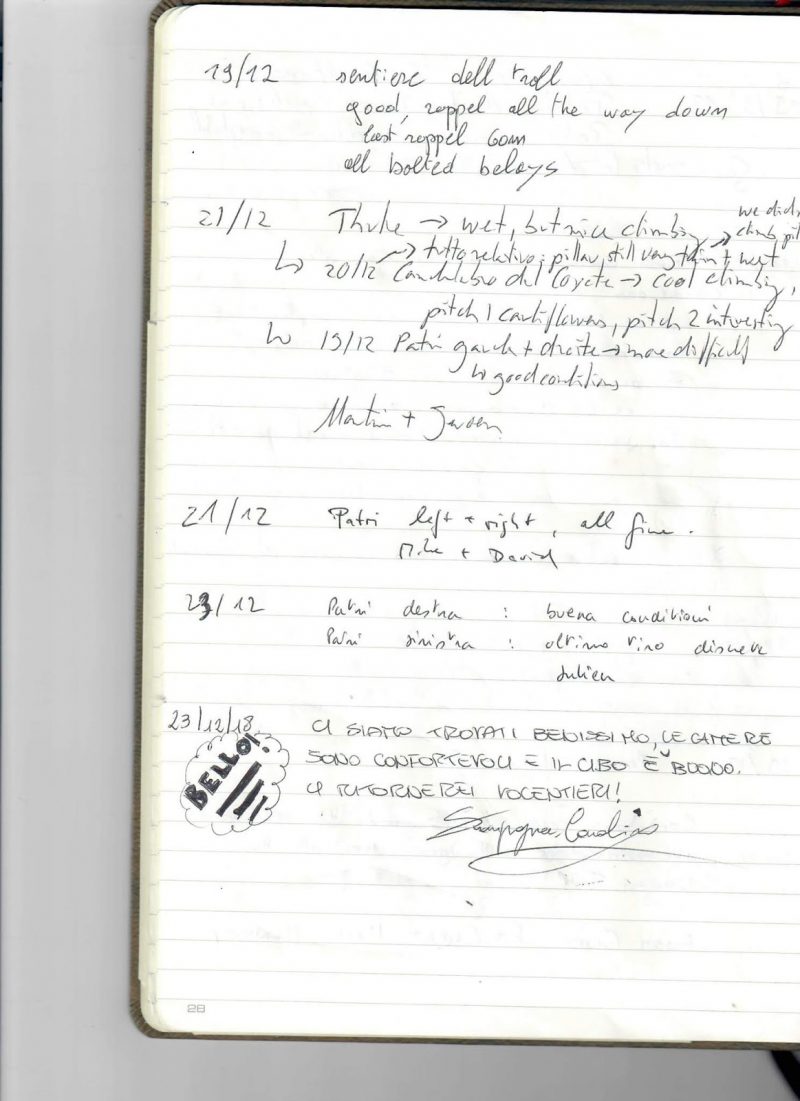 19/12 sentiere dell troll
good, rappel all the way down
last rappel 60m
all bolted belays
we did
climb
21/12 Thule → wet, but nice climbing
→ tutto relativo: pillar still very thin + wet
↳ 20/12 Candelabro del Coyote → cool climbing,
pitch 1 cauliflowers, pitch 2 interesting
↳ 19/12 Patri gauche + droite → more difficult
↳ good conditions
Martin + Jeroen
21/12 Patri left + right, all fine.
Mike + David
23/12 Patri destra : buena conditioni
Patri sinistra : ultimo tiro discreto
Julien
23/12/18
BELLO!
CI SIAMO TROVATI BENISSIMO, LE CAMERE
SONO CONFORTEVOLI E IL CIBO È BUONO.
CI RITORNEREI VOLENTIERI!
28